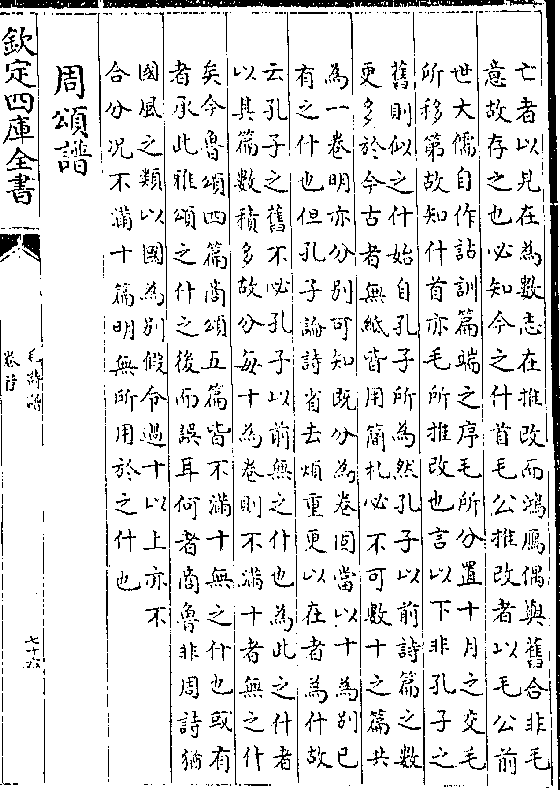 亡者以見在為數志在推改而鴻鴈偶與舊合非毛
意故存之也必知今之什首毛公推改者以毛公前
世大儒自作詁訓篇端之序毛所分置十月之交毛
所移第故知什首亦毛所推改也言以下非孔子之
舊則似之什始自孔子所為然孔子以前詩篇之數
更多於今古者無紙皆用簡札必不可數十之篇共
為一卷明亦分别可知既分為卷固當以十為别已
有之什也但孔子論詩省去煩重更以在者為什故
云孔子之舊不必孔子以前無之什也為此之什者
以其篇數積多故分每十為卷則不滿十者無之什
矣今魯頌四篇商頌五篇皆不滿十無之什也或有
者承此雅頌之什之後而誤耳何者商魯非周詩猶
國風之類以國為别假令過十以上亦不
合分况不滿十篇明無所用於之什也
周頌譜
欽定四庫全書
毛詩譜
卷首
七十六